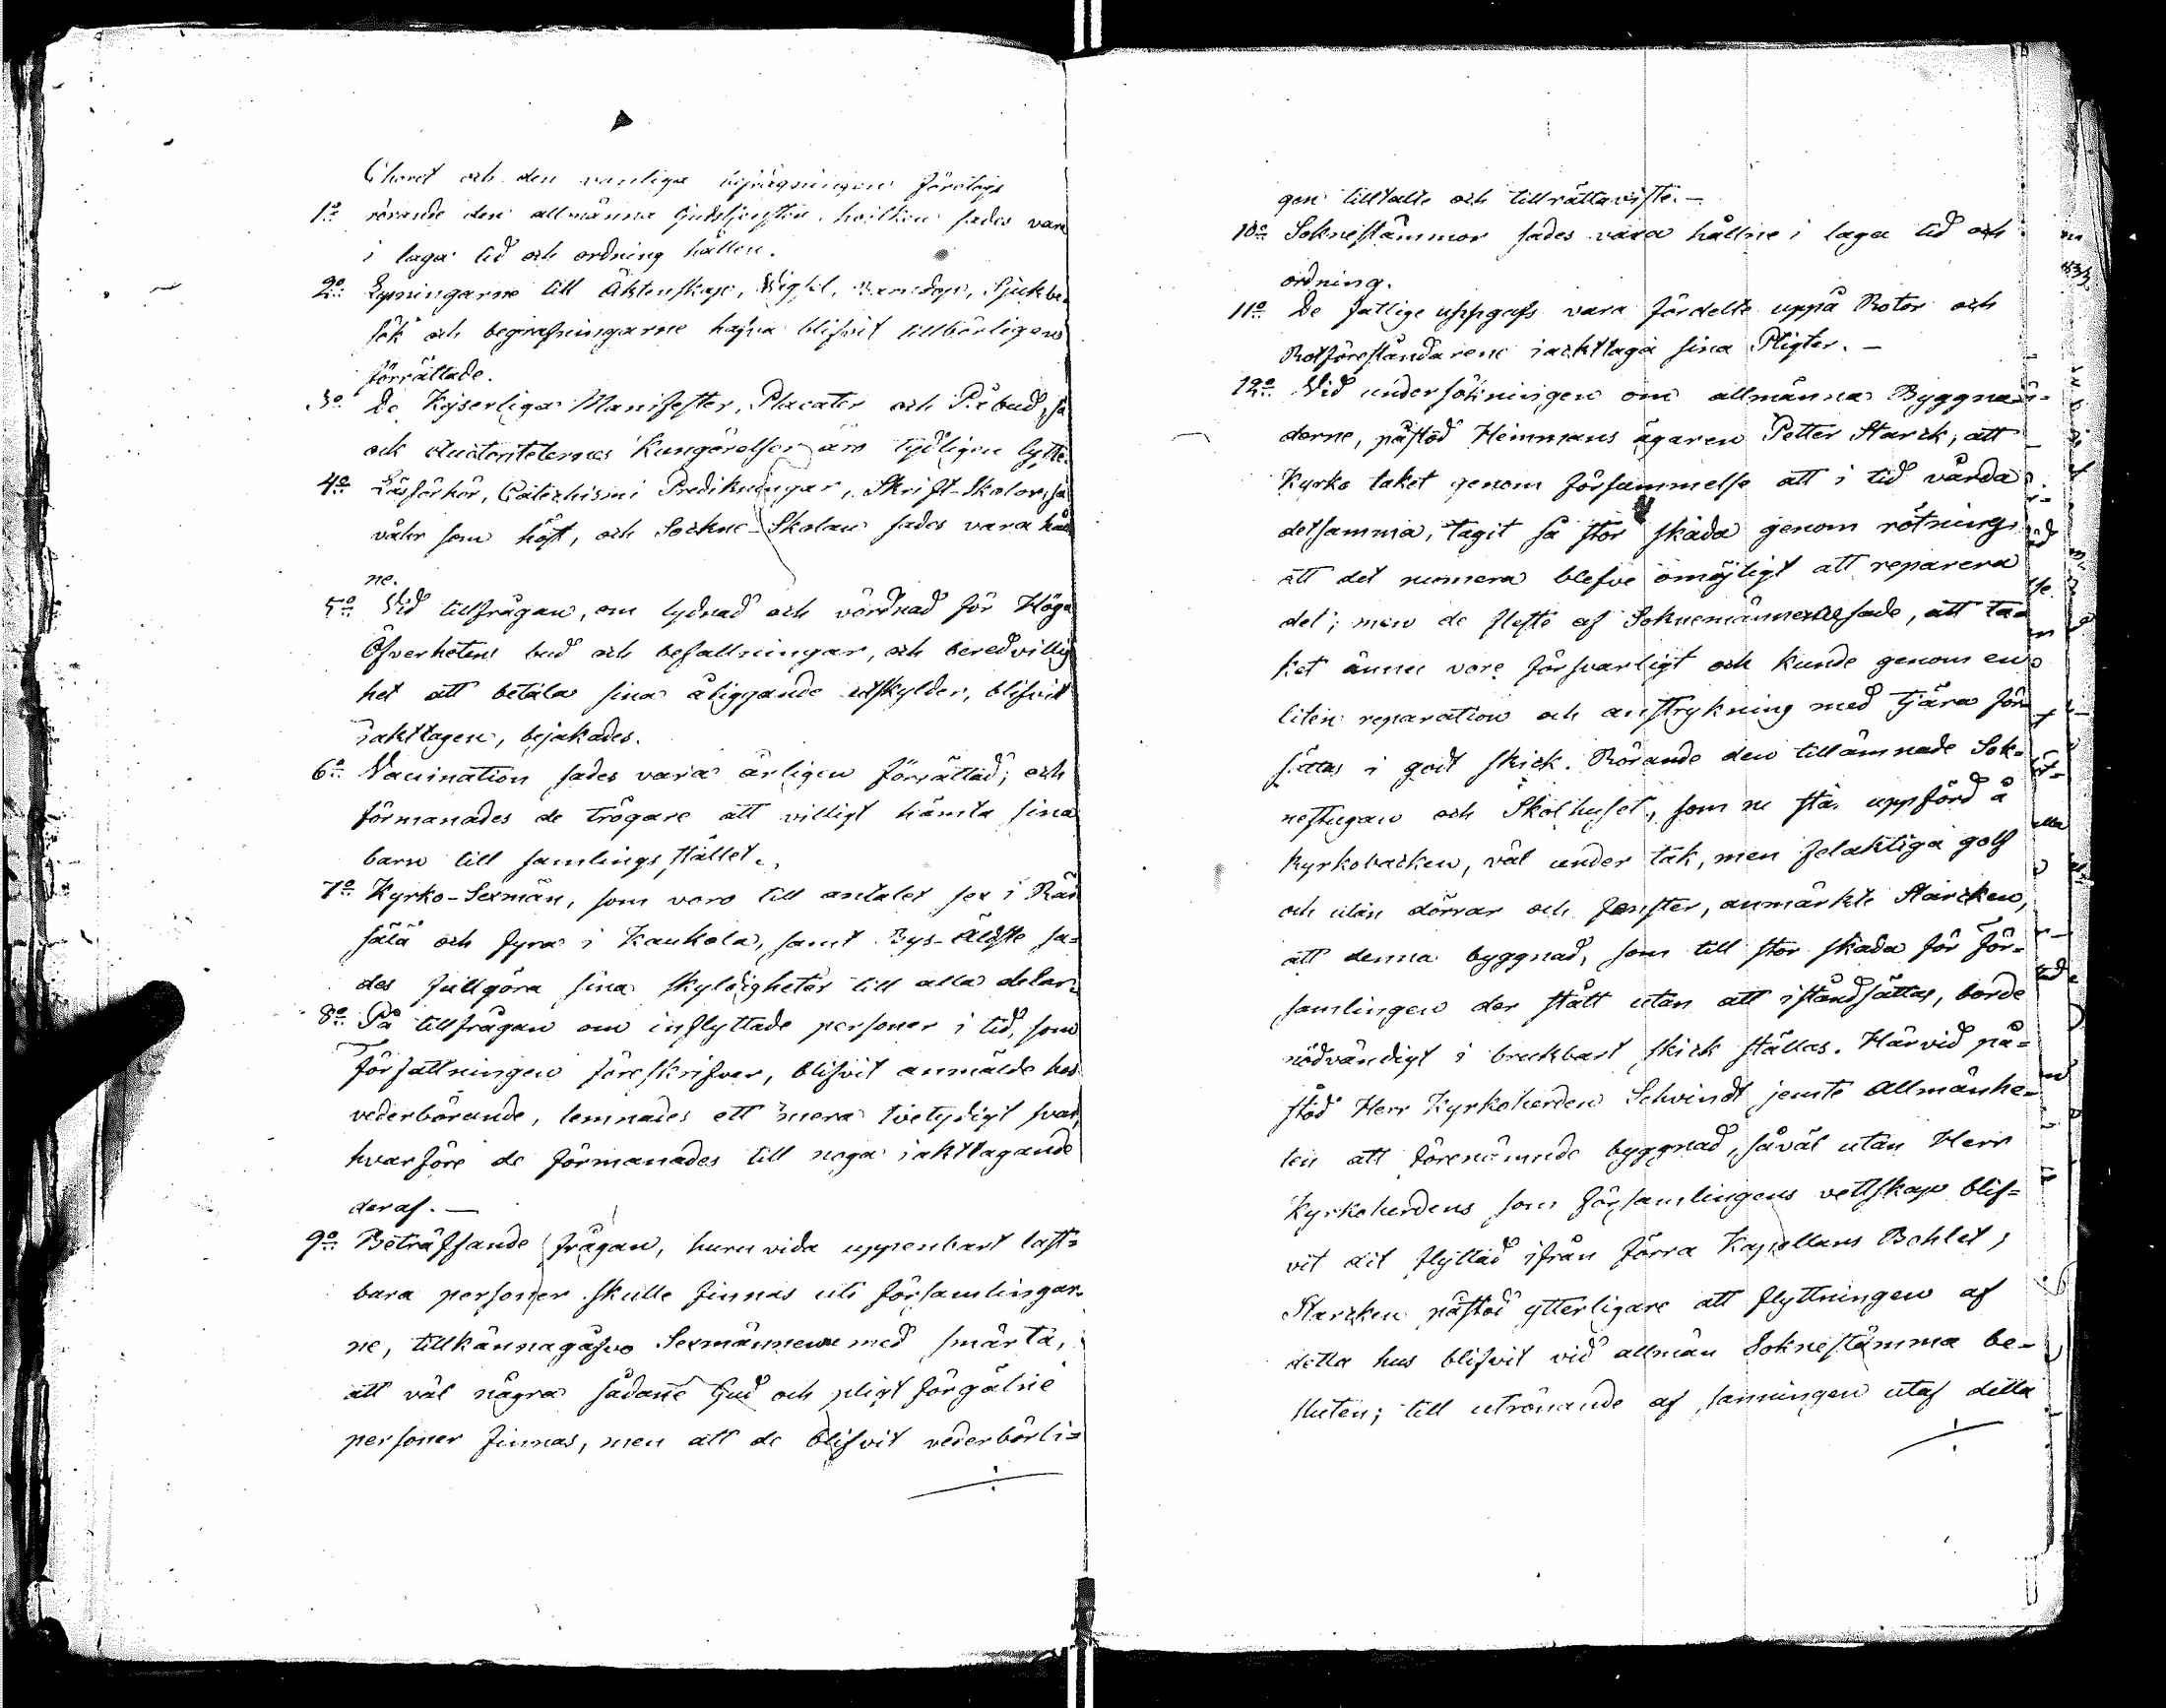 Choret och den vanliga befrågningen företogs
1o rörande den allmänna Gudstjensten, hvilken sades vara
i laga tid och ordning hållen.
2o Lysningarne till Äktenskap, Wigsl, Barndop, Sjukbe-
sök och begrafningarne hafva blifvit tillbörligen
förrättade.
3o De Kejserliga Manifester, Placater och Påbud, så
ock Auctoriteternes Kungörelser äro tydligen lyste.
4o Läsförhör, Catechismi Predikningar, Skrift-Skolor, så
vähr som höst, och Sockne-Skolan sades vara håll
ne.
5o Vid tillfrågan, om lydnad och vördnad för Höga
Öfverhetens bud och befallningar, och beredvillig
het att betala sina åliggande utskylder, blifvit
iakttagen, bejakades.
6o Vaccination sades vara årligen förrättad; och
förmanades de trögare att villigt hämta sina
barn till samlings stället.
7o Kyrko-Sexmän, som voro till antalet sex i Räi
sälä och fyra i Kaukola, samt Bys-Äldste sa-
des fullgöra sina skyldigheter till alla delar.
8o På tillfrågan om inflyttade personer i tid, som
Författningen föreskrifver, blifvit anmälde hos
vederbörande, lemnades ett mera tvetydigt svar,
hvarföre de förmanades till noga iakttagande
deraf. —
9o Beträffande frågan, huru vida uppenbart last-
bara personer skulle finnas uti församlingar-
ne, tillkännagåfvo Sexmännerne med smärta,
att väl några sådane Gud och pligt förgätne
personer finnas, men att de blifvit vederbörli-
gen tilltalte och tillrättaviste. —
10o Soknestämmor sades vara hållne i laga tid och
ordning.
11o De fattige uppgafs vara fördelte uppå Rotor och
Rotföreståndarene iackttaga sina Pligter. —
12o Vid undersökningen om allmänna Byggna-
derne, påstod Hemmans ägaren Petter Starck, att
Kyrko taket genom försummelse att i tid vårda
detsamma, tagit så stor skada genom rötning
att det numera blefve omöjligt att reparera
det; men de fleste af Soknemännerne sade, att ta-
ket ännu vore försvarligt och kunde genom en
liten reparation och anstrykning med tjära för
sättas i godt skick. Rörande den tillämnade Sok-
nestugan och Skolhuset, som nu står uppförd å
Kyrkobacken, väl under tak, men felaktiga golf
och utan dörrar och fenster, anmärkte Starcken,
att denna byggnad, som till stor skada för För-
samlingen der stått utan att iståndsättas, borde
nödvändigt i bruckbart skick ställas. Härvid på-
stod Herr Kyrkoherden Schvindt jemte Allmänhe-
ten att förenämnde byggnad, såväl utan Herr
Kyrkoherdens som församlingens vettskap blif-
vit dit flyttad ifrån förra Kapellans Bohlet;
Starcken påstod ytterligare att flyttningen af
detta hus blifvit vid allmän Soknestämma be-
sluten; till utrönande af sanningen utaf detta